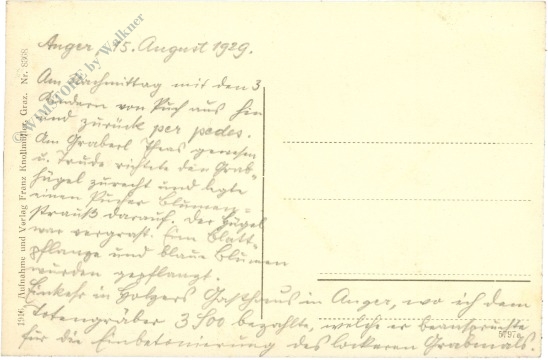 Anger, 15. August 1929.
Am Nachmittag mit den 3
Kindern von Puch aus hin
und zurück per pedes.
Am Graberl Theas gewesen
u. Trude richtete den Grab-
hügel zurecht und legte
einen Pucher Blumen-
strauß darauf. Der Hügel
war vergrast. Eine Blatt-
pflanze und blaue Blumen
wurden gepflanzt.
Einkehr in Holzers Gasthaus in Anger, wo ich dem
Totengräber 3 S 00 bezahlte, welche er beanspruchte
für die Einbetonierung des lockeren Grabmals.
1926, Aufnahme und Verlag Franz Knollmüller, Graz. Nr. 8508
© WIMSTORE by Walkner